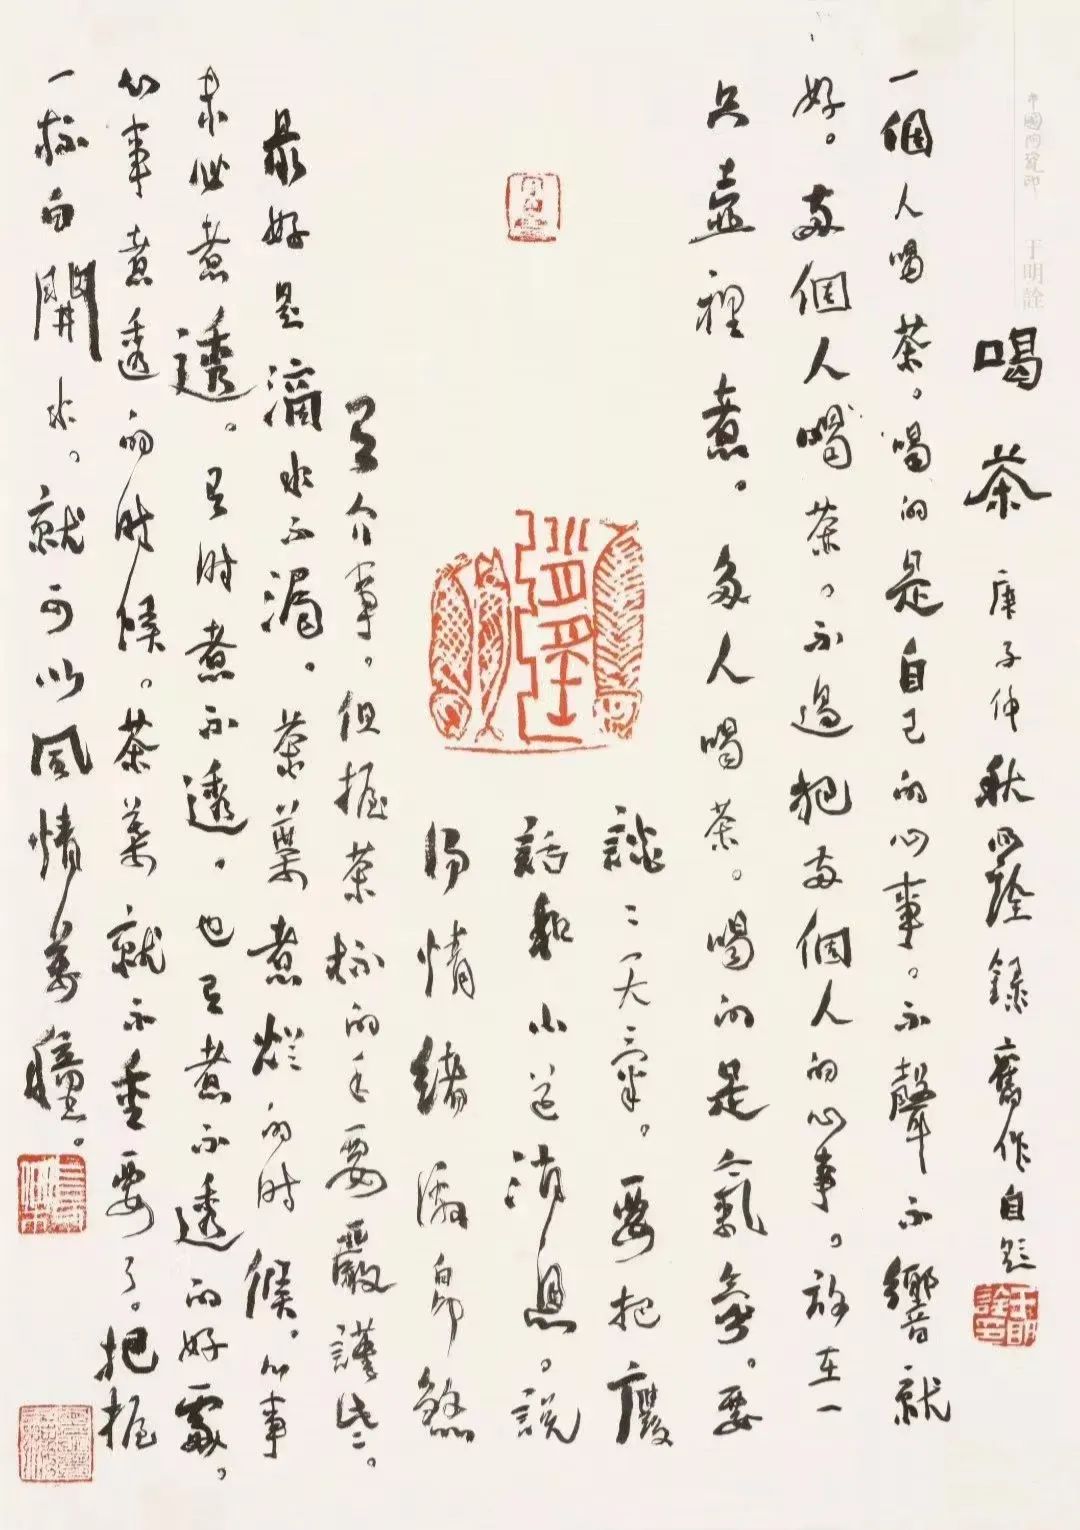 中國陶瓷印 于明詮
喝茶 庚子仲秋明詮錄舊作自題
一個人喝茶。喝的是自己的心事。不聲不響就
好。两個人喝茶。不過把两個人的心事。放在一
只壺裡煮。多人喝茶。喝的是氣氛。要
談二一大氣。要把廢
話和小道消息。說
得情緒激昂餘
有介事。但握茶杯的手要嚴謹些。
最好是滴水不漏。茶葉煮爛的時候。心事
未必煮透。有時煮不透。也有煮不透的好處。
心事煮透的時候。茶葉就不重要了。把握
一杯白開水。就可以風情萬種。
于明詮印